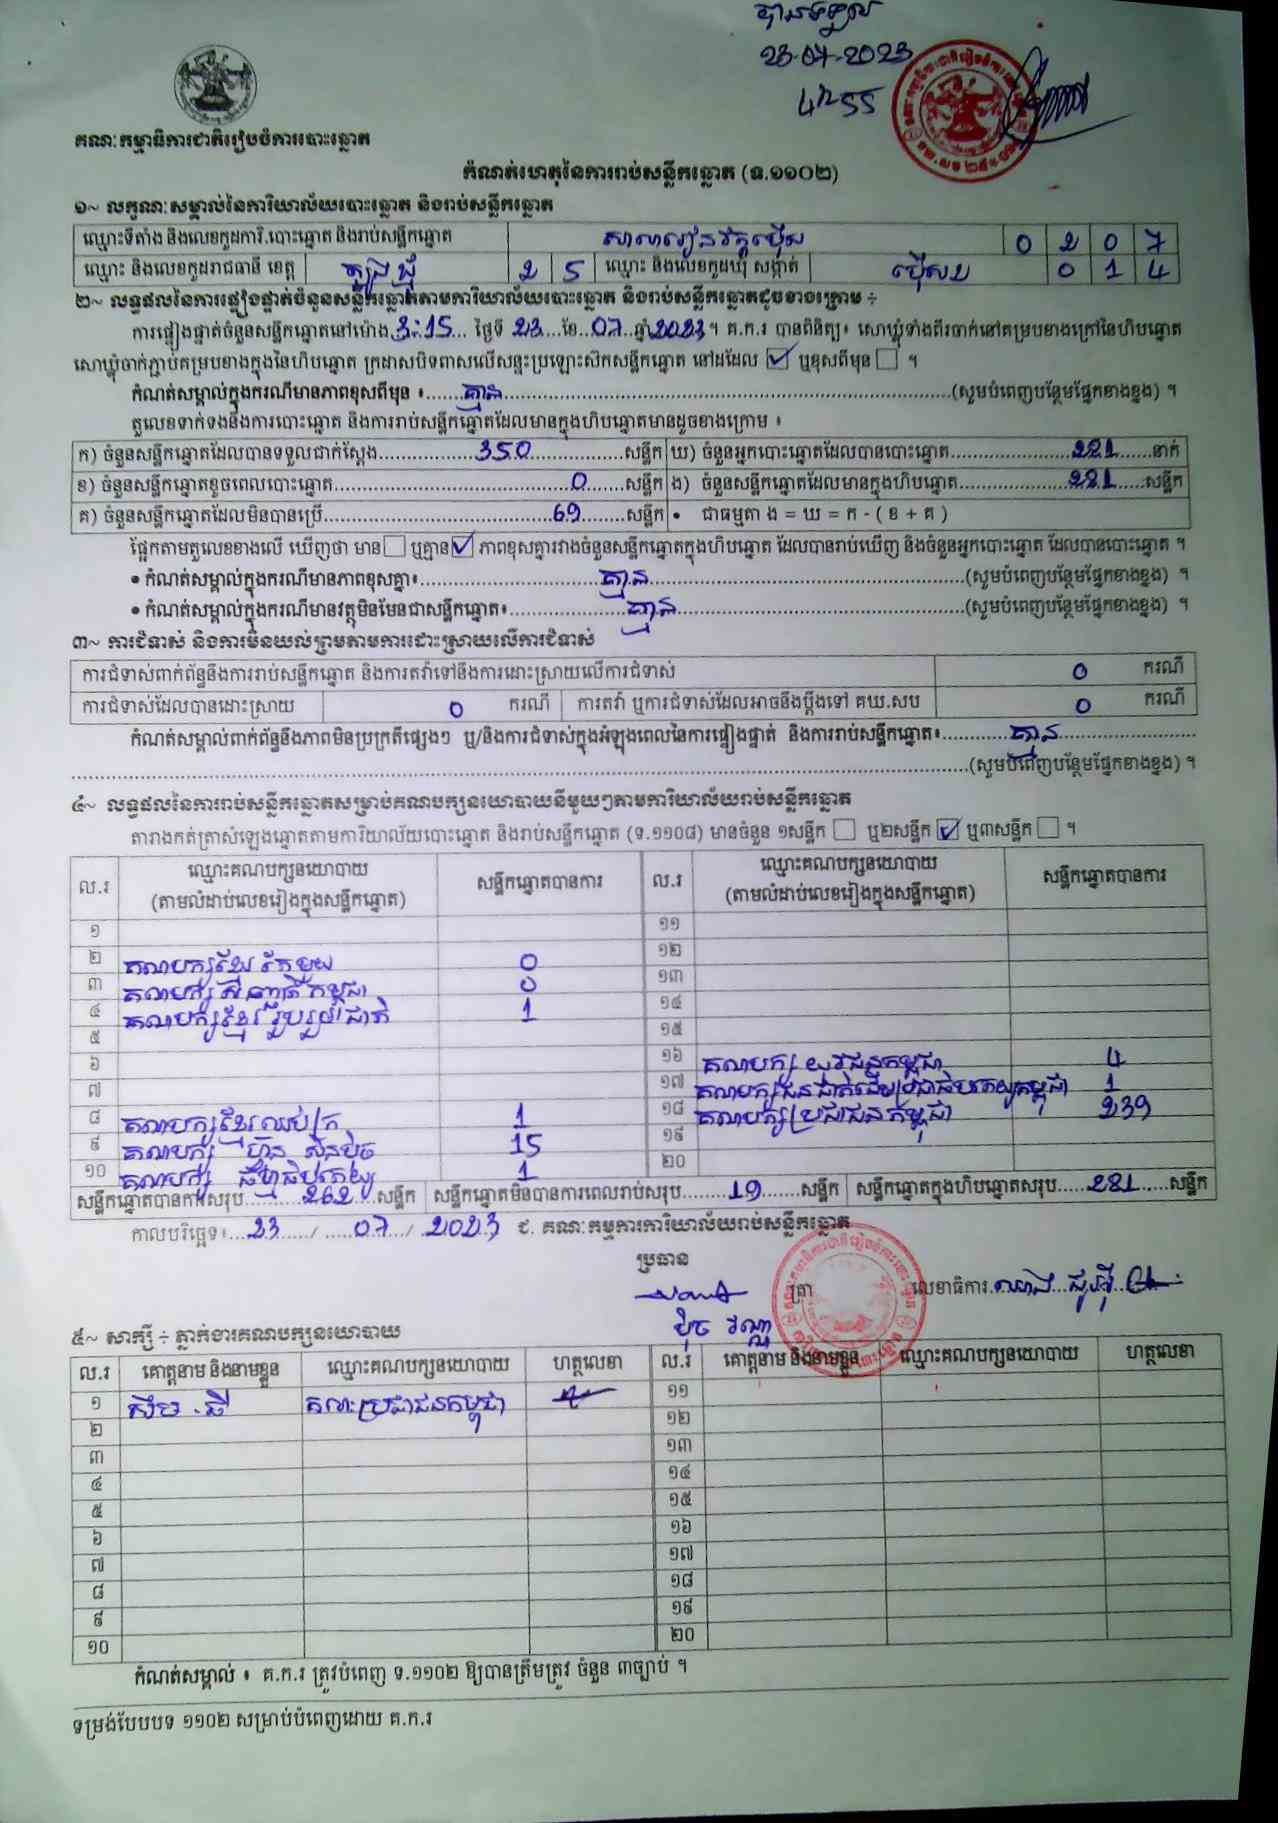 បានទទួល
23-07-2023
4h55
គណៈកម្មាធិការជាតិរៀបចំការបោះឆ្នោត
កំណត់ហេតុនៃការរាប់សន្លឹកឆ្នោត (ទ.១១០២)
១~ លក្ខណៈសម្គាល់នៃការិយាល័យបោះឆ្នោត និងរាប់សន្លឹកឆ្នោត
ឈ្មោះទីតាំង និងលេខកូដការិ.បោះឆ្នោត និងរាប់សន្លឹកឆ្នោត សាលារៀនវត្ត 0 2 0 7
ឈ្មោះ និងលេខកូដរាជធានី ខេត្ត ត្បូងឃ្មុំ 2 5 ឈ្មោះ និងលេខកូដឃុំ សង្កាត់ 0 1 4
២~ លទ្ធផលនៃការផ្ទៀងផ្ទាត់ចំនួនសន្លឹកឆ្នោតតាមការិយាល័យបោះឆ្នោត និងរាប់សន្លឹកឆ្នោតដូចខាងក្រោម ÷
ការផ្ទៀងផ្ទាត់ចំនួនសន្លឹកឆ្នោតនៅម៉ោង 3:15 ថ្ងៃទី 23 ខែ 07 ឆ្នាំ 2023 ។ គ.ក.រ បានពិនិត្យ៖ សោឃ្លុំទាំងពីរចាក់នៅគម្របខាងក្រៅនៃហិបឆ្នោត
សោឃ្លុំចាក់ភ្ជាប់គម្របខាងក្នុងនៃហិបឆ្នោត ក្រដាសបិទពាសលើសន្ទះប្រឡោះស៊កសន្លឹកឆ្នោត នៅដដែល ☑ ឬខុសពីមុន ☐ ។
កំណត់សម្គាល់ក្នុងករណីមានភាពខុសពីមុន ៖ គ្មាន (សូមបំពេញបន្ថែមផ្នែកខាងខ្នង) ។
តួលេខទាក់ទងនឹងការបោះឆ្នោត និងការរាប់សន្លឹកឆ្នោតដែលមានក្នុងហិបឆ្នោតមានដូចខាងក្រោម ៖
ក) ចំនួនសន្លឹកឆ្នោតដែលបានទទួលជាក់ស្តែង 350 សន្លឹក ឃ) ចំនួនអ្នកបោះឆ្នោតដែលបានបោះឆ្នោត 281 នាក់
ខ) ចំនួនសន្លឹកឆ្នោតខូចពេលបោះឆ្នោត 0 សន្លឹក ង) ចំនួនសន្លឹកឆ្នោតដែលមានក្នុងហិបឆ្នោត 281 សន្លឹក
គ) ចំនួនសន្លឹកឆ្នោតដែលមិនបានប្រើ 69 សន្លឹក • ជាធម្មតា ង = ឃ = ក - ( ខ + គ )
ផ្អែកតាមតួលេខខាងលើ ឃើញថា មាន ☐ ឬគ្មាន ☑ ភាពខុសគ្នារវាងចំនួនសន្លឹកឆ្នោតក្នុងហិបឆ្នោត ដែលបានរាប់ឃើញ និងចំនួនអ្នកបោះឆ្នោត ដែលបានបោះឆ្នោត ។
• កំណត់សម្គាល់ក្នុងករណីមានភាពខុសគ្នា៖ គ្មាន (សូមបំពេញបន្ថែមផ្នែកខាងខ្នង) ។
• កំណត់សម្គាល់ក្នុងករណីមានវត្ថុមិនមែនជាសន្លឹកឆ្នោត៖ គ្មាន (សូមបំពេញបន្ថែមផ្នែកខាងខ្នង) ។
៣~ ការជំទាស់ និងការមិនយល់ព្រមតាមការដោះស្រាយលើការជំទាស់
ការជំទាស់ពាក់ព័ន្ធនឹងការរាប់សន្លឹកឆ្នោត និងការតវ៉ាទៅនឹងការដោះស្រាយលើការជំទាស់ 0 ករណី
ការជំទាស់ដែលបានដោះស្រាយ 0 ករណី ការតវ៉ា ឬការជំទាស់ដែលអាចនឹងប្តឹងទៅ គឃ.សប 0 ករណី
កំណត់សម្គាល់ពាក់ព័ន្ធនឹងភាពមិនប្រក្រតីផ្សេងៗ ឬ/និងការជំទាស់ក្នុងអំឡុងពេលនៃការផ្ទៀងផ្ទាត់ និងការរាប់សន្លឹកឆ្នោត៖ គ្មាន
(សូមបំពេញបន្ថែមផ្នែកខាងខ្នង) ។
៤~ លទ្ធផលនៃការរាប់សន្លឹកឆ្នោតសម្រាប់គណបក្សនយោបាយនីមួយៗតាមការិយាល័យរាប់សន្លឹកឆ្នោត
តារាងកត់ត្រាសំឡេងឆ្នោតតាមការិយាល័យបោះឆ្នោត និងរាប់សន្លឹកឆ្នោត (ទ.១១០៨) មានចំនួន ១សន្លឹក ☐ ឬ២សន្លឹក ☑ ឬ៣សន្លឹក ☐ ។
ល.រ ឈ្មោះគណបក្សនយោបាយ (តាមលំដាប់លេខរៀងក្នុងសន្លឹកឆ្នោត) សន្លឹកឆ្នោតបានការ ល.រ ឈ្មោះគណបក្សនយោបាយ (តាមលំដាប់លេខរៀងក្នុងសន្លឹកឆ្នោត) សន្លឹកឆ្នោតបានការ
១ ១១
២ គណបក្សខ្មែរតែមួយ 0 ១២
៣ គណបក្ស កម្ពុជា 0 ១៣
៤ គណបក្សខ្មែររួបរួមជាតិ 1 ១៤
៥ ១៥
៦ ១៦ គណបក្ស យុវជនកម្ពុជា 4
៧ ១៧ គណបក្សជនជាតិដើមប្រជាធិបតេយ្យកម្ពុជា 1
៨ គណបក្សខ្មែរឈប់ក្រ 1 ១៨ គណបក្សប្រជាជនកម្ពុជា 239
៩ គណបក្ស ហ្វ៊ុនស៊ិនប៉ិច 15 ១៩
១០ គណបក្ស ធម្មាធិបតេយ្យ 1 ២០
សន្លឹកឆ្នោតបានការសរុប 262 សន្លឹក សន្លឹកឆ្នោតមិនបានការពេលរាប់សរុប 19 សន្លឹក សន្លឹកឆ្នោតក្នុងហិបឆ្នោតសរុប 281 សន្លឹក
កាលបរិច្ឆេទ៖ 23 / 07 / 2023 ជ. គណៈកម្មការការិយាល័យរាប់សន្លឹកឆ្នោត
ប្រធាន
ត្រា លេខាធិការ
៥~ សាក្សី ÷ ភ្នាក់ងារគណបក្សនយោបាយ
ល.រ គោត្តនាម និងនាមខ្លួន ឈ្មោះគណបក្សនយោបាយ ហត្ថលេខា ល.រ គោត្តនាម និងនាមខ្លួន ឈ្មោះគណបក្សនយោបាយ ហត្ថលេខា
១ គណៈប្រជាជនកម្ពុជា ១១
២ ១២
៣ ១៣
៤ ១៤
៥ ១៥
៦ ១៦
៧ ១៧
៨ ១៨
៩ ១៩
១០ ២០
កំណត់សម្គាល់ ៖ គ.ក.រ ត្រូវបំពេញ ទ.១១០២ ឱ្យបានត្រឹមត្រូវ ចំនួន ៣ច្បាប់ ។
ទម្រង់បែបបទ ១១០២ សម្រាប់បំពេញដោយ គ.ក.រ